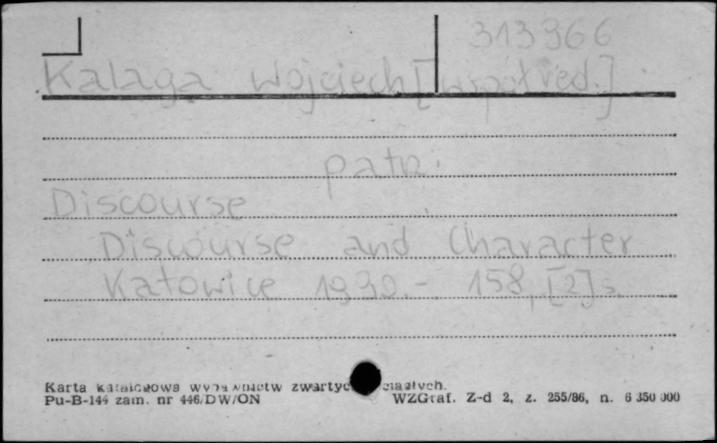 313966
Kalaga Wojciech [współred.]
patrz:
Discourse
Discourse and Character
Katowice 1990.- 158, [2] s.
Karta katalogowa wydawnictw zwartych ciągłych.
Pu-B-144 zam. nr 446/DW/ON WZGraf. Z-d 2, z. 255/86, n. 6 350 000